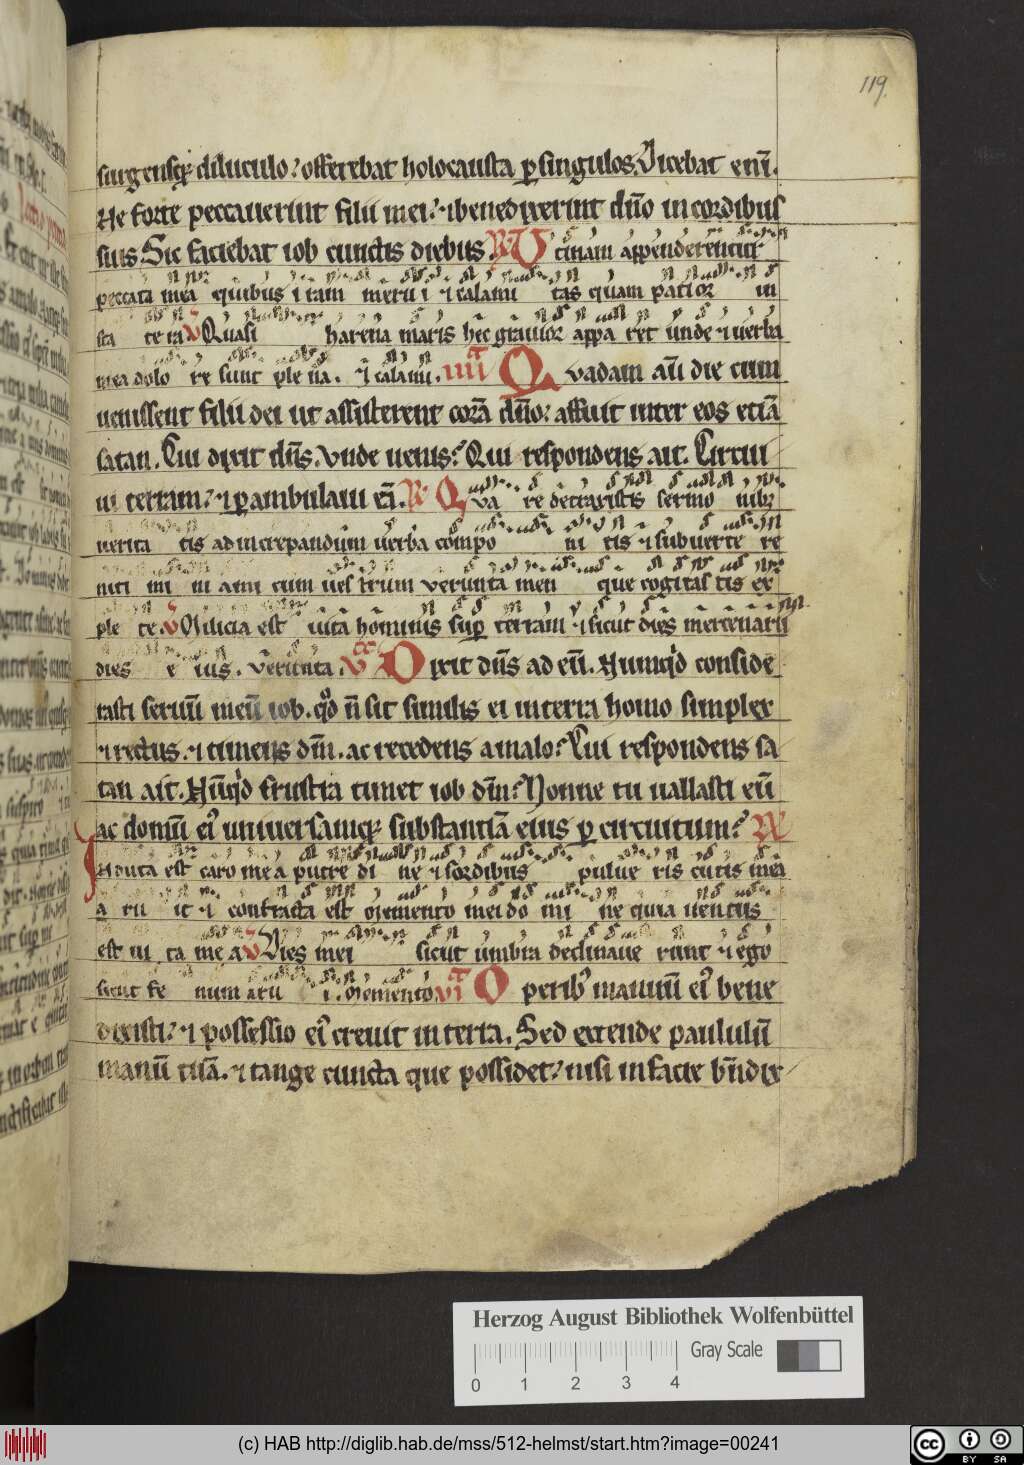 119.
surgensq; diluculo? offerebat holocausta p singulos. Dicebat eni̅.
Ne forte peccauerint filii mei? ⁊ benedixerint dn̅o in cordibus
suis. Sic faciebat iob cunctis diebus. R Utinam appenderentur
peccata mea quibus iram merui ⁊ calami tas quam patior in
sta te ra V Quasi harena maris hec grauior appa ret unde ⁊ uerba
mea dolo re sunt ple na. ⁊ calami. iiii Quadam au̅ die cum
uenissent filii dei ut assisterent cora̅ dn̅o? affuit inter eos etia̅
satan. Cui dixit dn̅s. Vnde uenis? Qui respondens ait. Circui
ui terram? ⁊ p ambulaui ea̅. R Qua re detraxistis sermo nib;
uerita tis ad increpandum uerba compo ni tis ⁊ subuerte re
niti mi ni ami cum ues trum verunta men que cogitas tis ex
ple te. V Milicia est uita hominis sup terram ⁊ sicut dies mercenarii
dies e ius. verunta. V Dixit dn̅s ad eu̅. Numq'd conside
rasti seruu̅ meu̅ iob. qd n̅ sit similis ei in terra homo simplex
⁊ rectus. ⁊ timens dm̅. ac recedens a malo? Cui respondens sa
tan ait. Nu̅q'd frustra timet iob dm̅? Nonne tu uallasti eu̅
ac domu̅ ei' uniuersamq; substantia̅ eius p circuitum? R
Induta est caro me a putre di ne ⁊ sordibus pulue ris cutis mea
a ru it ⁊ contracta est Memento mei do mi ne quia uentus
est ui ta me a V Dies mei sicut umbra declinaue runt ⁊ ego
sicut fe num aru i. Memento. vi Operib' manuu̅ ei' bene
dixisti? ⁊ possessio ei' creuit in terra. Sed extende paululu̅
manu̅ tua̅. ⁊ tange cuncta que possidet? nisi in facie bn̅dix
Herzog August Bibliothek Wolfenbüttel
Gray Scale
0 1 2 3 4
(c) HAB http://diglib.hab.de/mss/512-helmst/start.htm?image=00241
cc BY SA